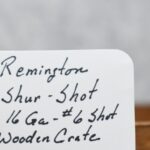 Remington
Shur-Shot
16 Ga-#6 Shot
Wooden Crate